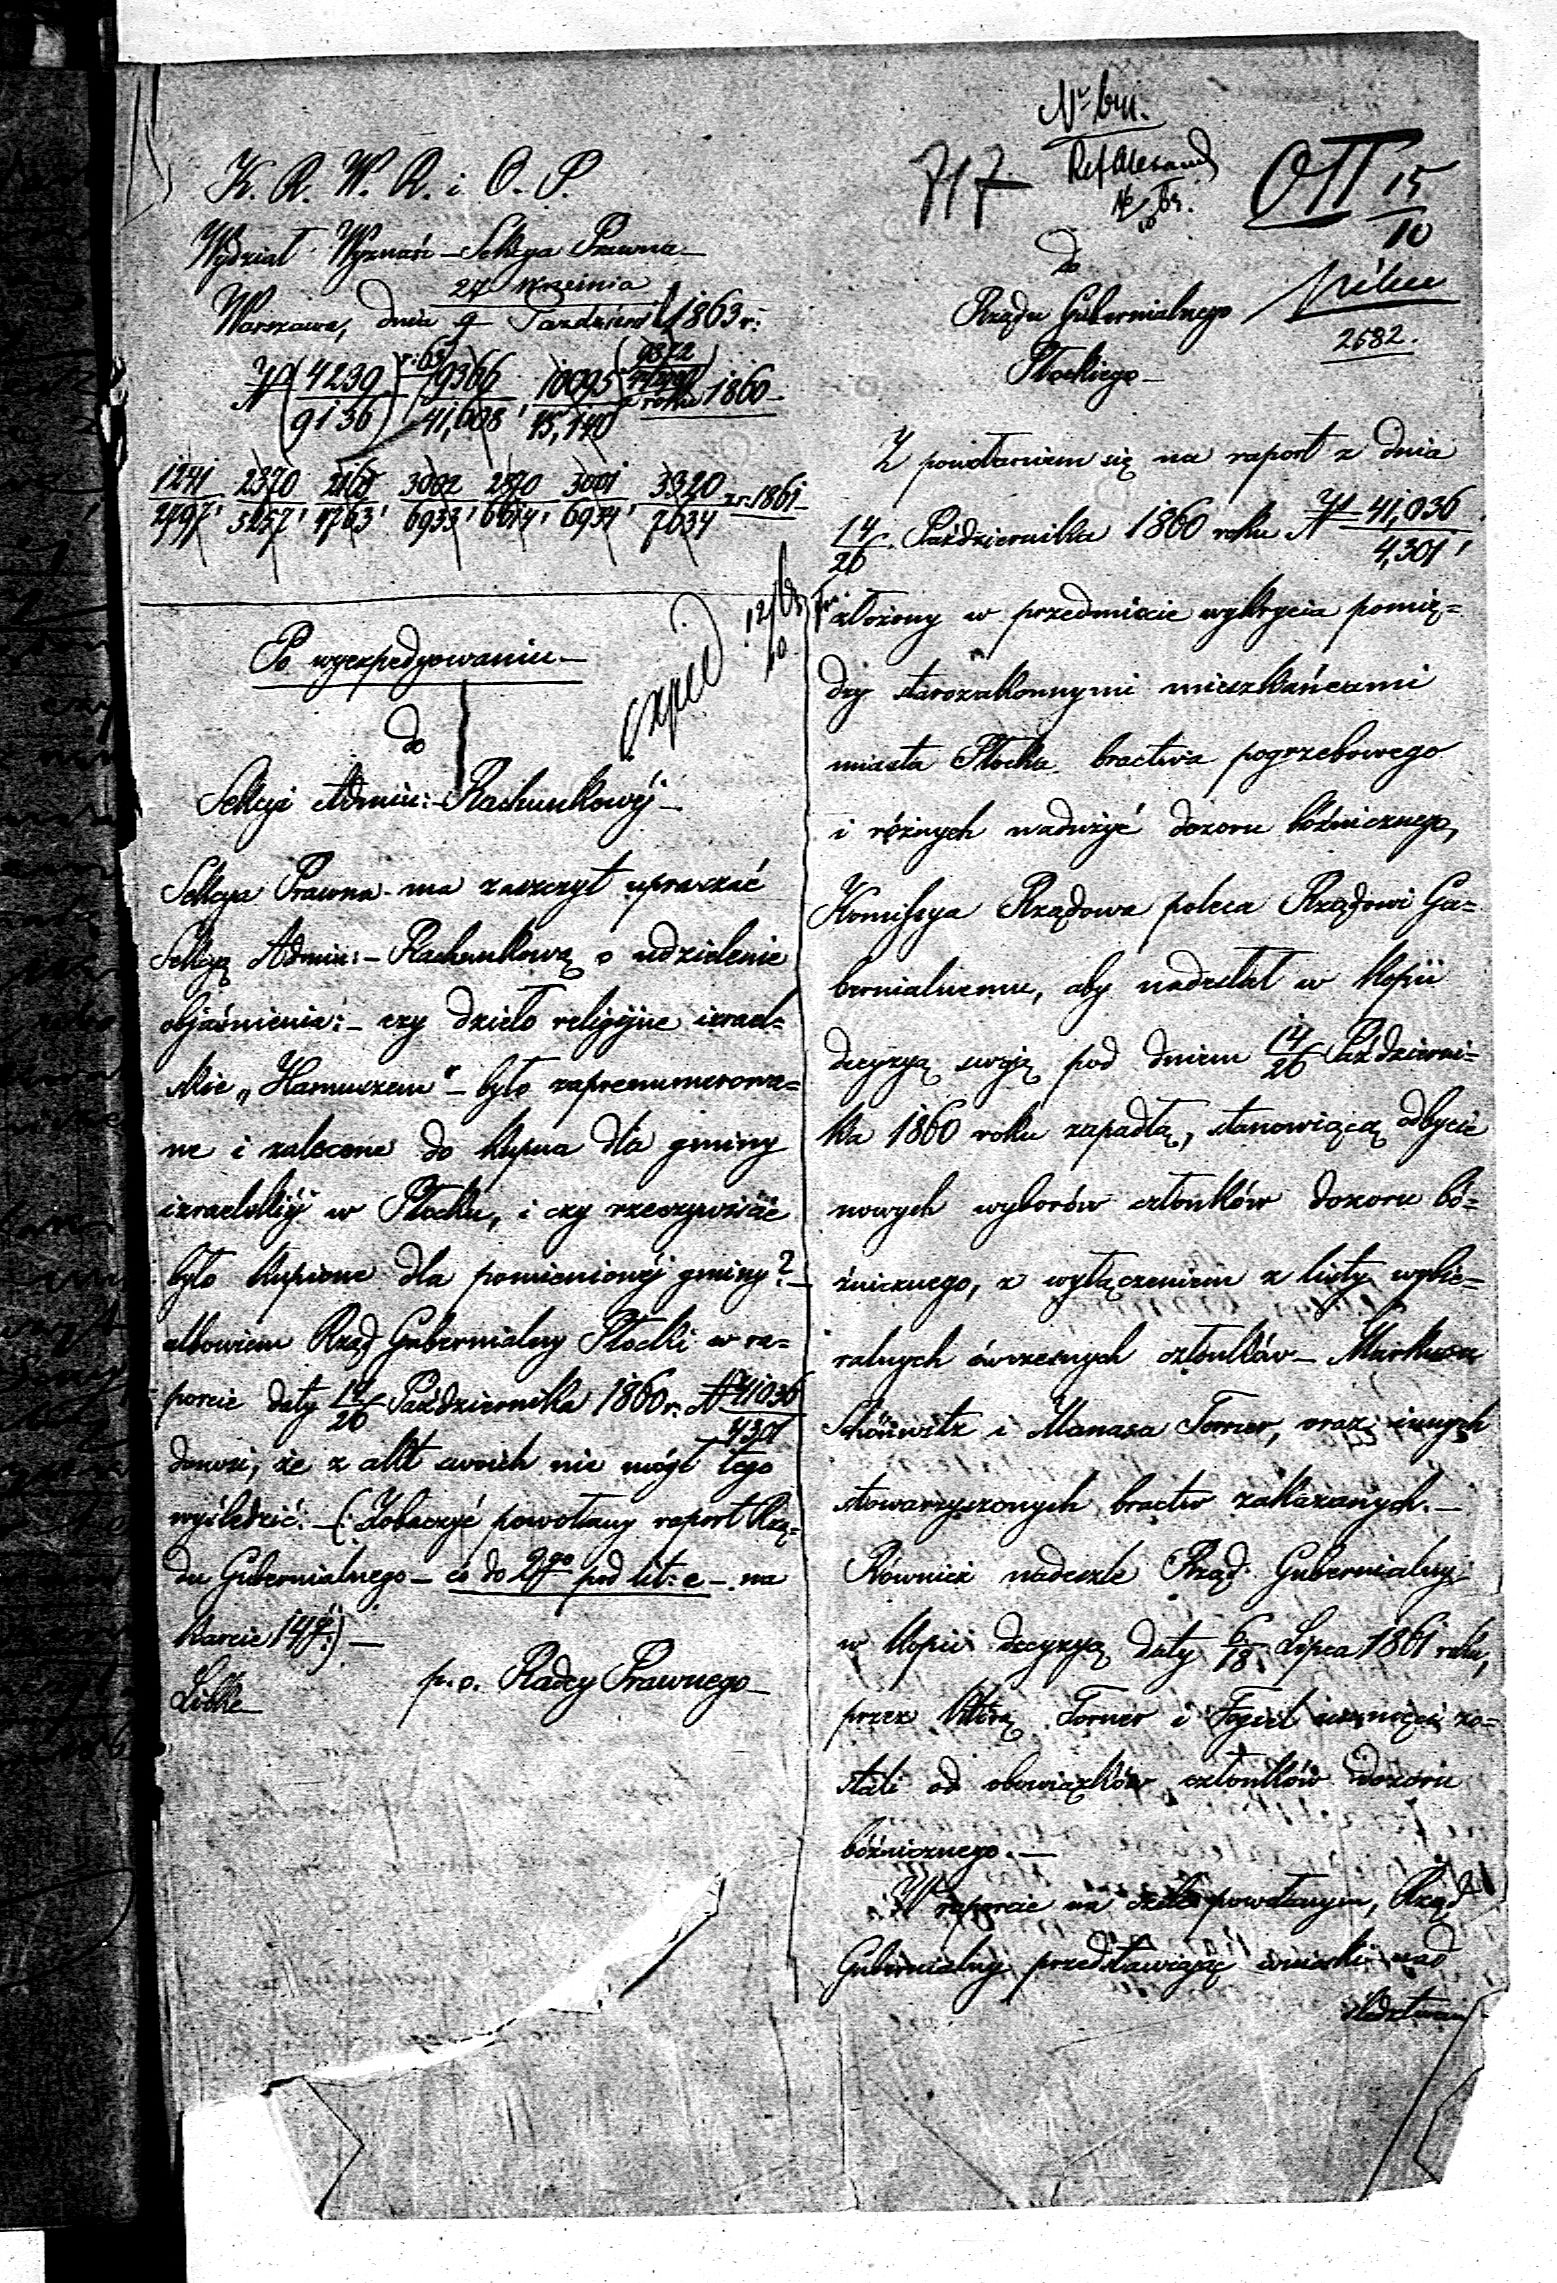 K. R. W. R. i O. P.
Wydział Wyznań – Sekcya Prawna –
24 Września
Warszawa, dnia 9 Października 1863 r:
N (4239/9136) r: 63 9366/41,608, 10095/15,140, 9372 roku 1860 –
1241/2797, 2370/5257, 2165/4763, 3002/6933, 2870/6614, 3001/6934, 3320/7634 z r. 1861 –
exped 12/10 63
Po wyexpedyowaniu –
do
Sekcyi Admin: – Rachunkowéj –
Sekcya Prawna ma zaszczyt upraszać
Sekcyą Admin: – Rachunkową o udzielenie
objaśnienia: – czy dzieło religijne izrael=
skie „Hamuszem" – było zaprenumerowa=
ne i zalecone do kupna dla gminy
izraelskiéj w Płocku, i czy rzeczywiście
było kupione dla pomienionéj gminy? –
albowiem Rząd Gubernialny Płocki w ra=
porcie daty 14/26 Października 1860 r. N 41036/4301
donosi, że z akt swoich nie mógł tego
wyśledzić. – (: Zobaczyć powołany raport Rzą=
du Gubernialnego – co do 2go pod lit: e – na
karcie 147 :) –
p. o. Radcy Prawnego –
717
OII 15/10
2682.
do
Rządu Gubernialnego
Płockiego –
Z powołaniem się na raport z dnia
14/26 Października 1860 roku N 41,036/4,301,
złożony w przedmiocie wykrycia pomię=
dzy starozakonnymi mieszkańcami
miasta Płocka bractwa pogrzebowego
i różnych nadużyć dozoru bóżnicznego,
Komissya Rządowa poleca Rządowi Gu=
bernialnemu, aby nadesłał w kopii
decyzyą swoją pod dniem 14/26 Październi=
ka 1860 roku zapadłą, stanowiącą odbycie
nowych wyborów członków dozoru bó=
żnicznego, z wyłączeniem z listy wybie=
ralnych ówczesnych członków – Markusa
Schönwitz i Manasa Torner, oraz innych
stowarzyszonych bractw zakazanych. –
Również nadeszle Rząd Gubernialny
w kopii decyzyą daty 6/18 Lipca 1861 roku,
przez którą Torner i Fogiel usunięci zo=
stali od obowiązków członków dozoru
bóżnicznego. –
W raporcie na czele powołanym, Rząd
Gubernialny przedstawiając wnioski nad